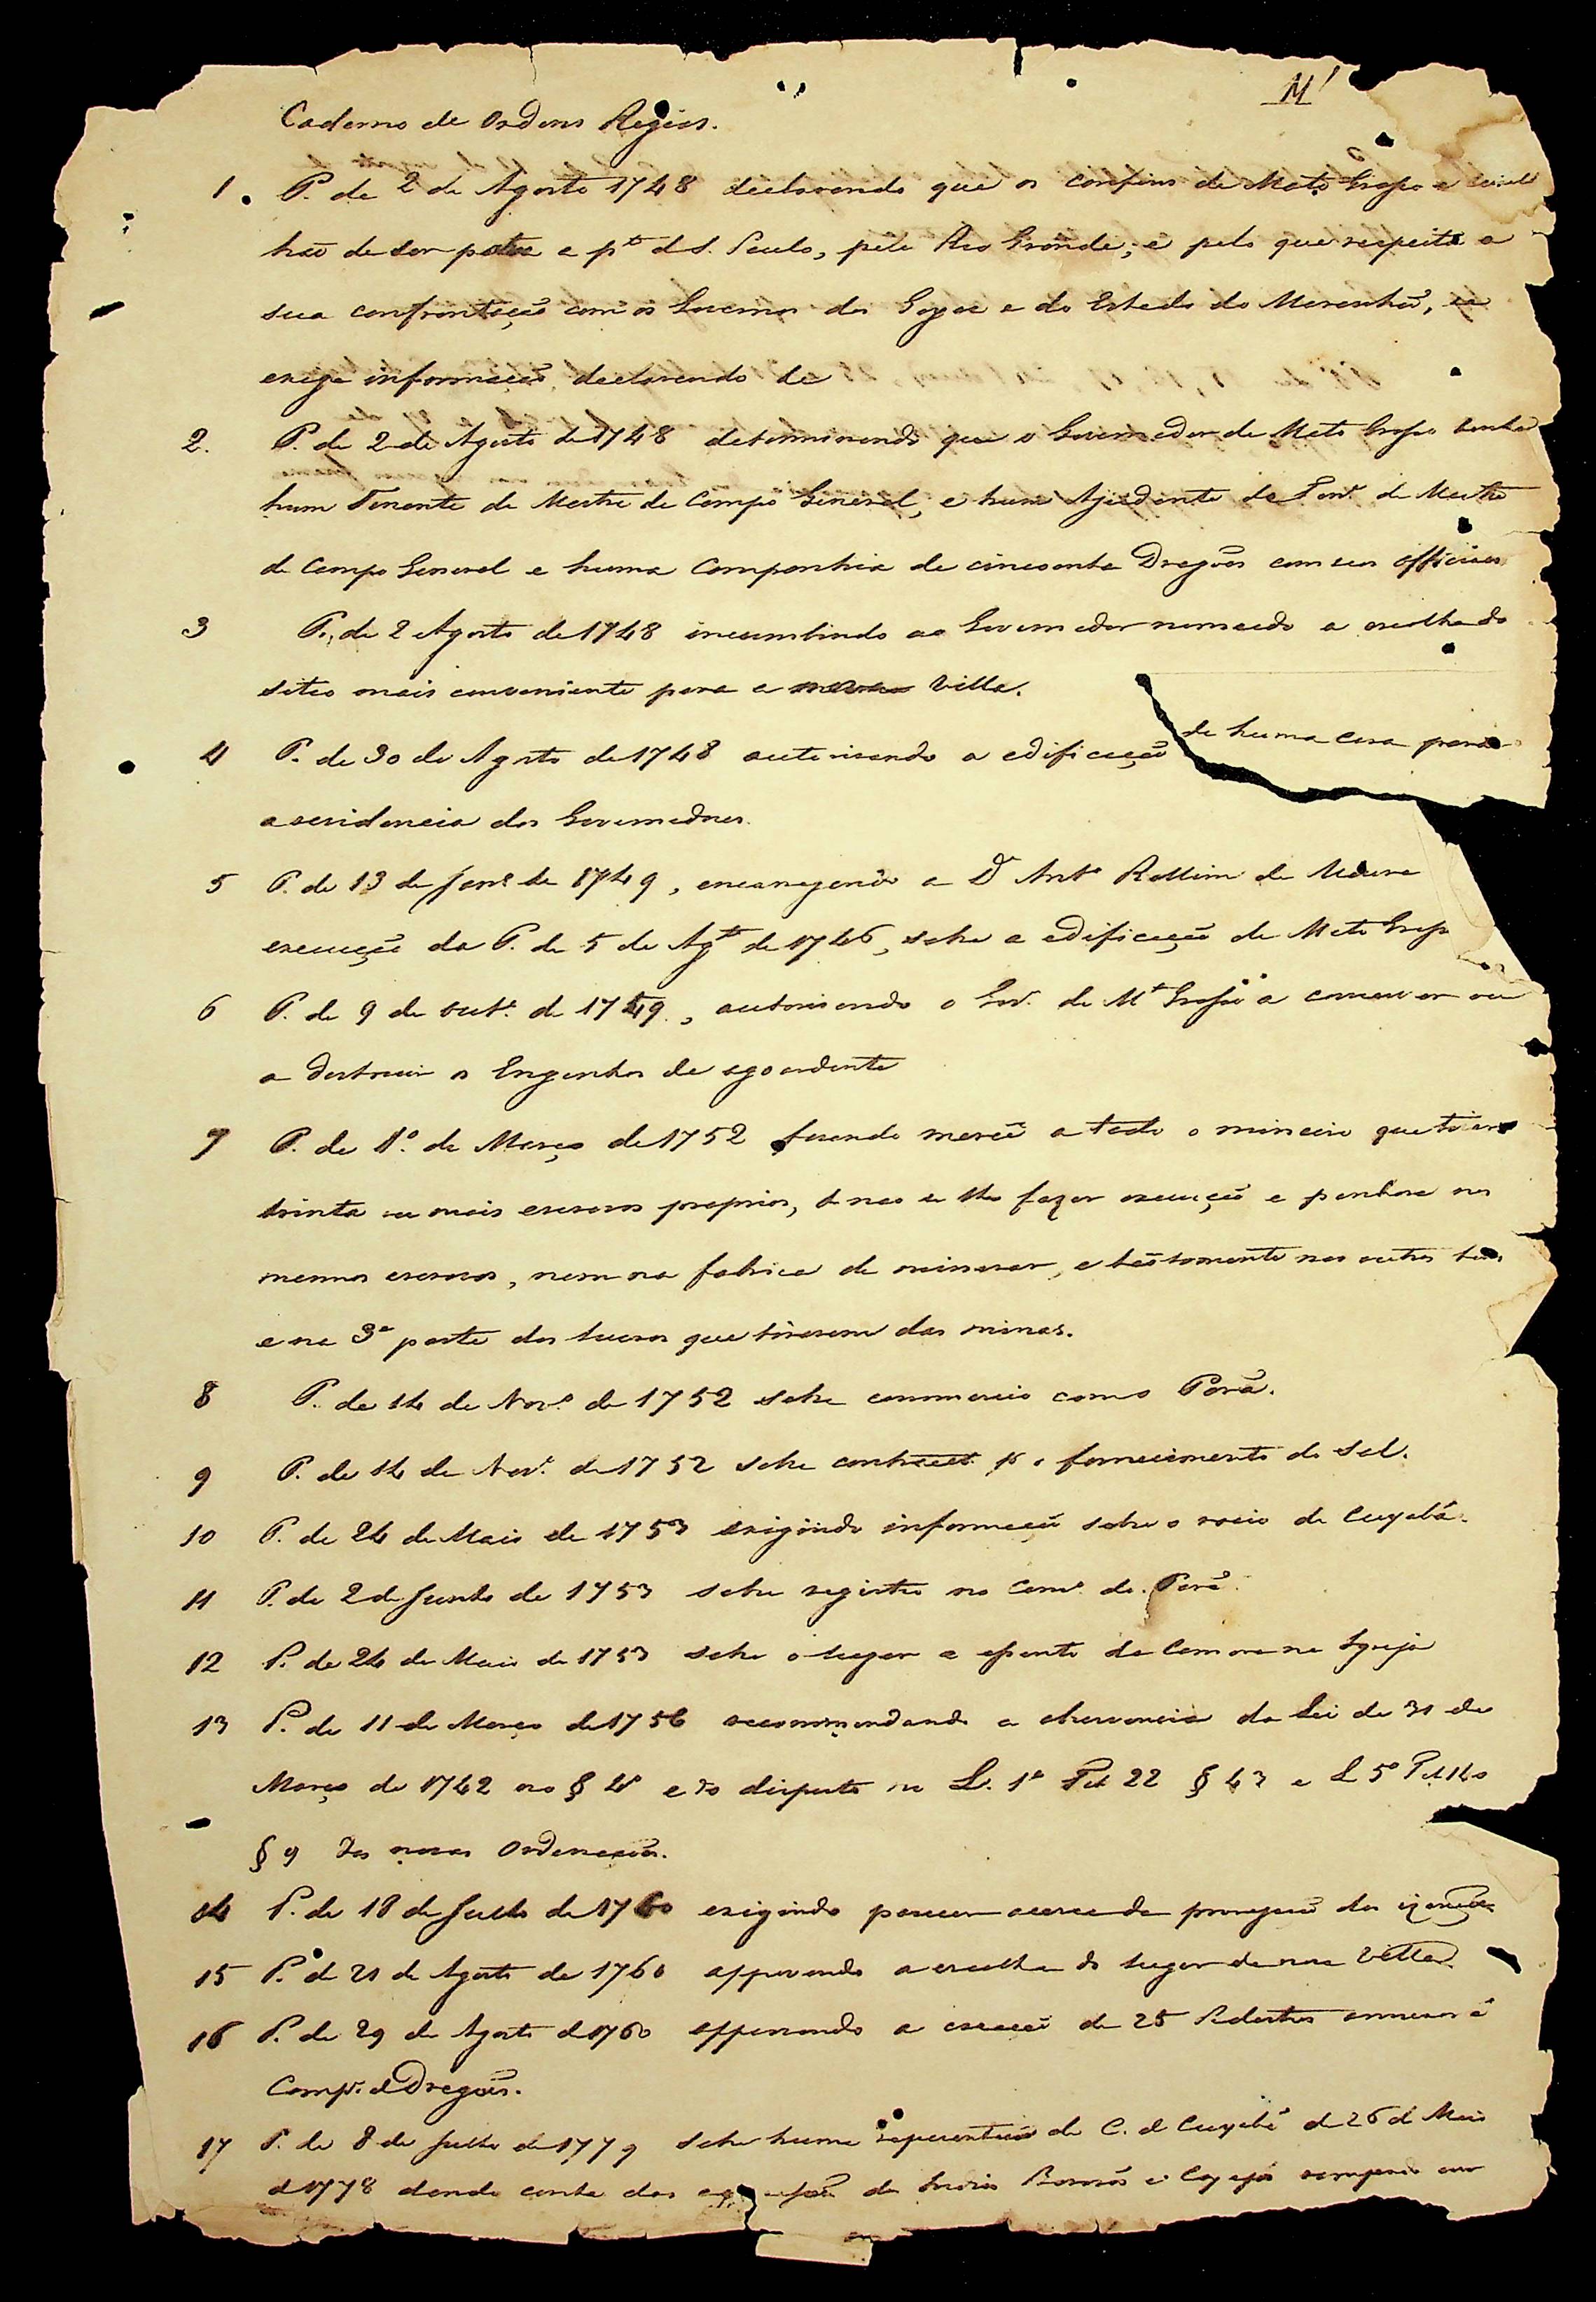 M
Caderno de Ordens Regias.
1. P. de 2 de Agosto 1748 declarando que os confins de Mato Grosso e
hão de ser pᵗᵒ d S. Paulo, pelo Rio Grande, e pelo que respeita a
sua confrontação com os Governos dos Goyaz e do Estado do Maranhão, se
exige informação, declarando de
2. P. de 2 de Agosto de 1748 determinando que o Governador de Mato Grosso tenha
hum Tenente de Mestre de Campo General, e hum Ajudante de Tenᵗ. de Mestre
de Campo General e huma Companhia de cincoenta Dragões com seus officiaes
3 P. de 2 Agosto de 1748 incumbindo ao Governador nomeado a escolha do
sitio mais conveniente para a Villa.
4 P. de 30 de Agosto de 1748 autorisando a edificação de huma casa para
a residencia dos Governadores.
5 P. de 13 de Janʳ de 1749, encarregando a D Antº Rollim de Moura
execução da P. de 5 de Agᵗᵒ de 1746, sobre a edificação de Mato Grosso
6 P. de 9 de outᵒ. de 1749, autorisando o Gov. de Mᵗᵒ Grosso a conservar ou
a destruir os Engenhos de agoardente
7 P. de 1º. de Março de 1752 fasendo mercê a todo o mineiro que tiver
trinta ou mais escravos proprios, de nao se lhe fazer execução e penhora nos
mesmos escravos, nem na fabrica de minerar, e tãosomente nos outros bens
e na 3ª parte dos lucros que tirarem das minas.
8 P. de 14 de Novº de 1752 sobre commercio com o Pará.
9 P. de 14 de Novº. de 1752 sobre contracto pª o fornecimento do sal.
10 P. de 24 de Maio de 1753 exigindo informação sobre o rocio de Cuyabá.
11 P. de 2 de Junho de 1753 sobre registro no Comº. do Pará.
12 P. de 24 de Maio de 1753 sobre o lugar e assento da Camara na Igreja
13 P. de 11 de Março de 1756 recommendando a observancia da Lei de 31 de
Março de 1742 no § 4º e do disposto no L. 1º Tit 22 § 43 e L 5º Tit 140
§ 9 das novas Ordenações.
14 P. de 18 de Julho de 1760 exigindo parecer acerca da
15 P. d 21 de Agosto de 1760 approvando a escolha do lugar da nova Villa
16 P. de 29 de Agosto d 1760 approvando a creação de 25 Pedestres annexos á
Compª. d Dragões.
17 P. de 8 de Julho de 1779 sobre huma representação da C. d Cuyabá d 26 d Maio
d 1778 dando conta das de Indios Bororós e Cayapós